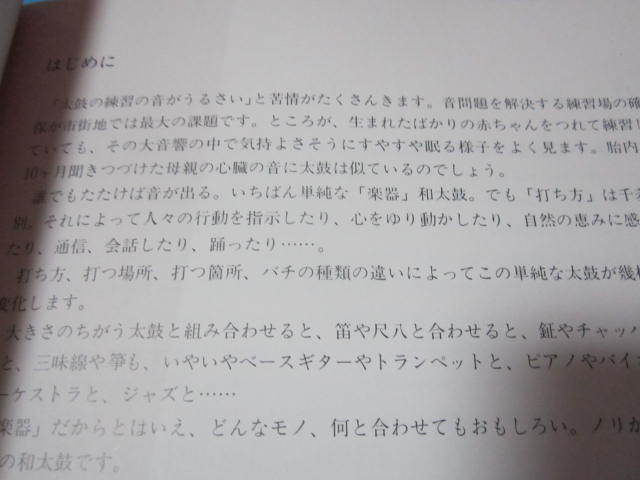 はじめに
「太鼓の練習の音がうるさい」と苦情がたくさんきます。音問題を解決する練習場の確
保が市街地では最大の課題です。ところが、生まれたばかりの赤ちゃんをつれて練習し
ていても、その大音響の中で気持よさそうにすやすや眠る様子をよく見ます。胎内
10ヶ月聞きつづけた母親の心臓の音に太鼓は似ているのでしょう。
誰でもたたけば音が出る。いちばん単純な「楽器」和太鼓。でも「打ち方」は千差
別。それによって人々の行動を指示したり、心をゆり動かしたり、自然の恵みに感
たり、通信、会話したり、踊ったり……。
打ち方、打つ場所、打つ箇所、バチの種類の違いによってこの単純な太鼓が幾
変化します。
大きさのちがう太鼓と組み合わせると、笛や尺八と合わせると、鉦やチャッパ
と、三味線や箏も、いやいやベースギターやトランペットと、ピアノやバイオ
ーケストラと、ジャズと……
楽器」だからとはいえ、どんなモノ、何と合わせてもおもしろい。ノリが
の和太鼓です。